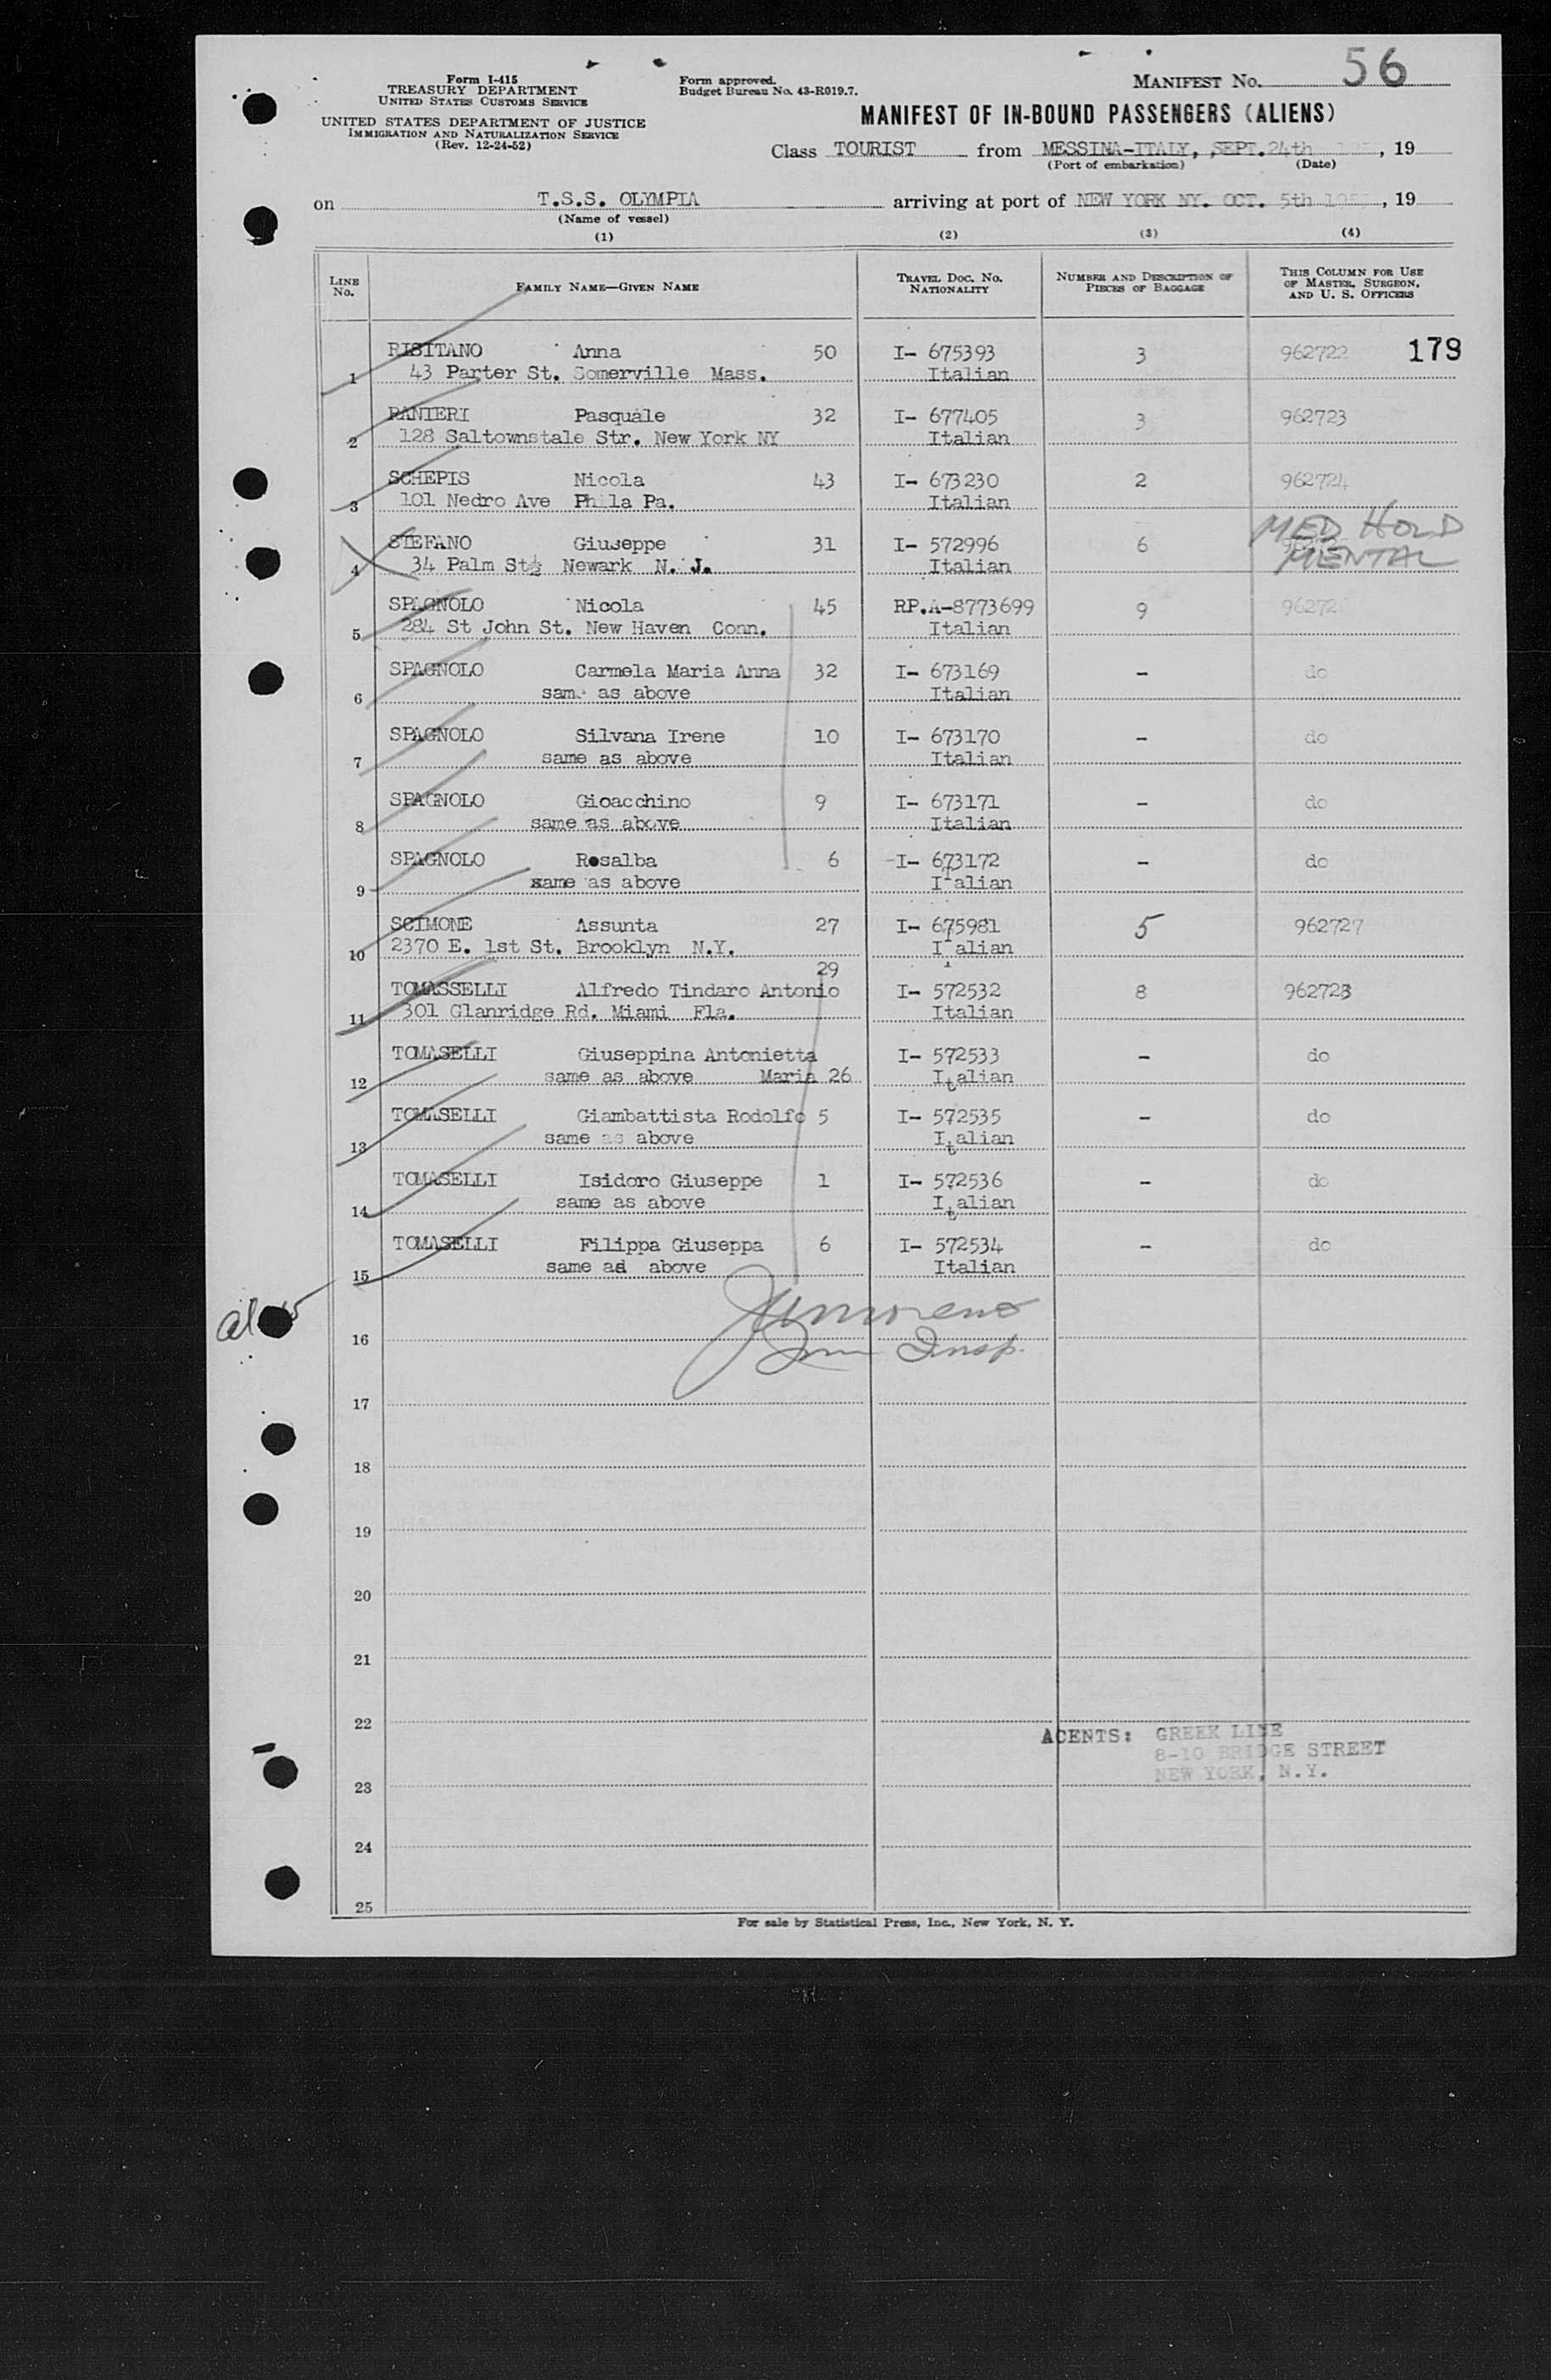 Form I-415
TREASURY DEPARTMENT
UNITED STATES CUSTOMS SERVICE
UNITED STATES DEPARTMENT OF JUSTICE
IMMIGRATION AND NATURALIZATION SERVICE
(Rev. 12-24-52)
Form approved.
Budget Bureau No. 43-R019.7.
MANIFEST No. 56
MANIFEST OF IN-BOUND PASSENGERS (ALIENS)
Class TOURIST from MESSINA-ITALY, SEPT.24th , 19
(Port of embarkation) (Date)
on T.S.S. OLYMPIA arriving at port of NEW YORK NY. OCT. 5th , 19
(Name of vessel)
(1) (2) (3) (4)
LINE No. FAMILY NAME—GIVEN NAME TRAVEL DOC. No. NATIONALITY NUMBER AND DESCRIPTION OF PIECES OF BAGGAGE THIS COLUMN FOR USE OF MASTER, SURGEON, AND U. S. OFFICERS
RISITANO Anna 50 I- 675393 3 962722 179
1 43 Parter St. Somerville Mass. Italian
RANIERI Pasquale 32 I- 677405 3 962723
2 128 Saltownstale Str. New York NY Italian
SCHEPIS Nicola 43 I- 673230 2 962724
3 101 Nedro Ave Phila Pa. Italian
STEFANO Giuseppe 31 I- 572996 6 MED HOLD
4 34 Palm St. Newark N. J. Italian MENTAL
SPAGNOLO Nicola 45 RP.A-8773699 9
5 284 St John St. New Haven Conn. Italian
SPAGNOLO Carmela Maria Anna 32 I- 673169 - do
6 same as above Italian
SPAGNOLO Silvana Irene 10 I- 673170 - do
7 same as above Italian
SPAGNOLO Gioacchino 9 I- 673171 - do
8 same as above Italian
SPAGNOLO Rosalba 6 -I- 673172 - do
9 same as above Italian
SCIMONE Assunta 27 I- 675981 5 962727
10 2370 E. 1st St. Brooklyn N.Y. Italian
29
TOMASSELLI Alfredo Tindaro Antonio I- 572532 8 962728
11 301 Glanridge Rd. Miami Fla. Italian
TOMASELLI Giuseppina Antonietta I- 572533 - do
12 same as above Maria 26 Italian
TOMASELLI Giambattista Rodolfo 5 I- 572535 - do
13 same as above Italian
TOMASELLI Isidoro Giuseppe 1 I- 572536 - do
14 same as above Italian
TOMASELLI Filippa Giuseppa 6 I- 572534 - do
15 same as above Italian
16 Imm Insp.
17
18
19
20
21
22
AGENTS: GREEK LINE
8-10 BRIDGE STREET
NEW YORK, N.Y.
23
24
25
For sale by Statistical Press, Inc., New York, N. Y.